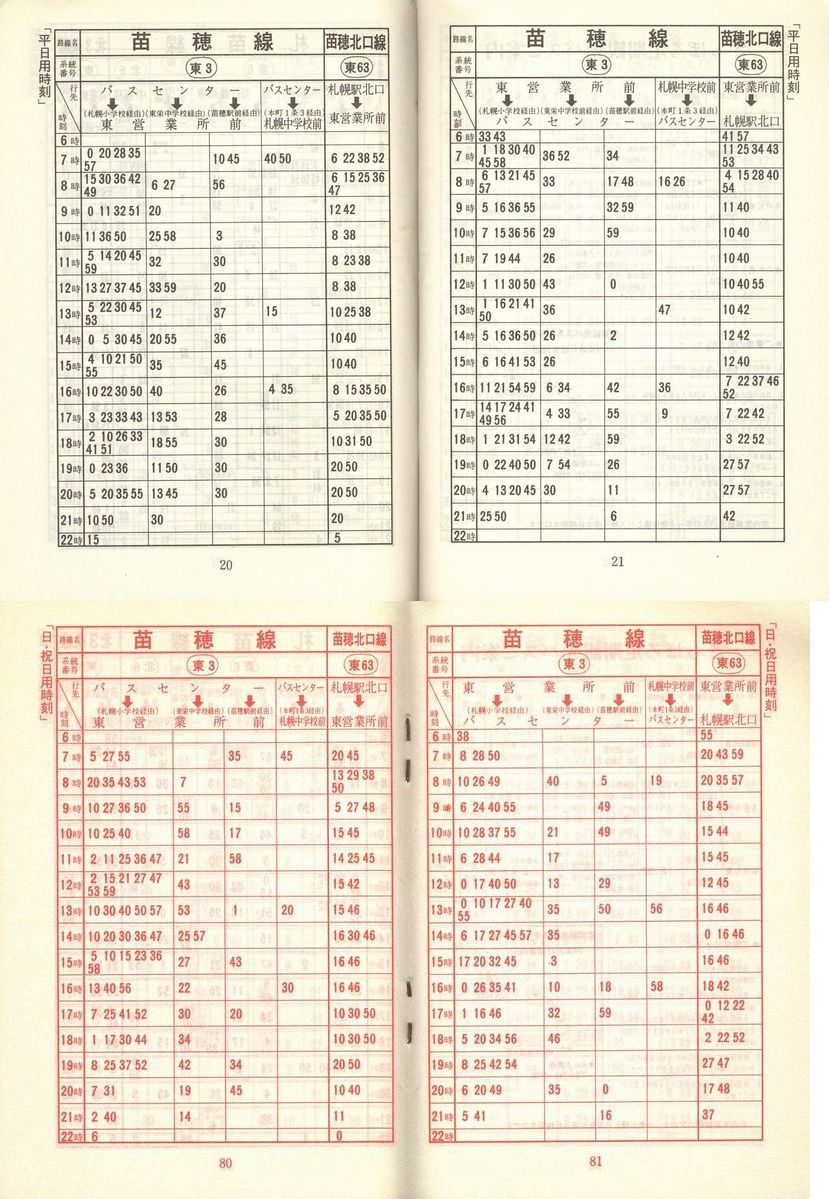 「平日用時刻」
路線名 苗穂線 苗穂北口線
系統番号 東3 東63
行先 時刻 バスセンター バスセンター 札幌駅北口
(札幌小学校経由) (東栄中学校経由) (苗穂駅前経由) (本町1条3経由)
東営業所前 札幌中学校前 東営業所前
6時
7時 0 20 28 35 57 10 45 40 50 6 22 38 52
8時 15 30 36 42 49 6 27 56 6 15 25 36 47
9時 0 11 32 51 20 12 42
10時 11 36 50 25 58 3 8 38
11時 5 14 20 45 59 32 30 8 23 38
12時 13 27 37 45 33 59 20 8 38
13時 5 22 30 45 53 12 37 15 10 25 38
14時 0 5 30 45 20 55 36 10 40
15時 4 10 21 50 55 35 45 10 40
16時 10 22 30 50 40 26 4 35 8 15 35 50
17時 3 23 33 43 13 53 28 5 20 35 50
18時 2 10 26 33 41 51 18 55 30 10 31 50
19時 0 23 36 11 50 30 20 50
20時 5 20 35 55 13 45 30 20 50
21時 10 50 30 20
22時 15 5
20
「平日用時刻」
路線名 苗穂線 苗穂北口線
系統番号 東3 東63
行先 時刻 東営業所前 札幌中学校前 東営業所前
(札幌小学校経由) (東栄中学校経由) (苗穂駅前経由) (本町1条3経由)
バスセンター バスセンター 札幌駅北口
6時 33 43 41 57
7時 1 18 30 40 45 58 36 52 34 11 25 34 43 53
8時 6 13 21 45 57 33 17 48 16 26 4 15 28 40 54
9時 5 16 36 55 32 59 11 40
10時 7 15 36 56 29 59 10 40
11時 7 19 44 26 10 40
12時 1 11 30 50 43 0 10 40 55
13時 1 16 21 41 50 36 47 10 42
14時 5 16 36 50 26 2 12 42
15時 6 16 41 53 26 12 40
16時 11 21 54 59 6 34 42 36 7 22 37 46 52
17時 14 17 24 41 49 56 4 33 55 9 7 22 42
18時 1 21 31 54 12 42 59 3 22 52
19時 0 22 40 50 7 54 26 27 57
20時 4 13 20 45 30 11 27 57
21時 25 50 6 42
22時
21
「日・祝日用時刻」
路線名 苗穂線 苗穂北口線
系統番号 東3 東63
行先 時刻 バスセンター バスセンター 札幌駅北口
(札幌小学校経由) (東栄中学校経由) (苗穂駅前経由) (本町1条3経由)
東営業所前 札幌中学校前 東営業所前
6時
7時 5 27 55 35 45 20 45
8時 20 35 43 53 7 13 29 38 50
9時 10 27 36 50 55 15 5 27 48
10時 10 25 40 58 17 15 45
11時 2 11 25 36 47 21 58 14 25 45
12時 2 15 21 27 47 53 59 43 15 42
13時 10 30 40 50 57 53 1 20 15 46
14時 10 20 30 36 47 25 57 16 30 46
15時 5 10 15 23 36 58 27 43 16 46
16時 13 40 56 22 30 16 46
17時 7 25 41 52 30 20 10 30 50
18時 1 17 30 44 34 10 30 50
19時 8 25 37 52 42 34 20 50
20時 7 31 19 45 10 40
21時 2 40 14 11
22時 6 0
80
「日・祝日用時刻」
路線名 苗穂線 苗穂北口線
系統番号 東3 東63
行先 時刻 東営業所前 札幌中学校前 東営業所前
(札幌小学校経由) (東栄中学校経由) (苗穂駅前経由) (本町1条3経由)
バスセンター バスセンター 札幌駅北口
6時 38 55
7時 8 28 50 20 43 59
8時 10 26 49 40 5 19 20 35 57
9時 6 24 40 55 49 18 45
10時 10 28 37 55 21 49 15 44
11時 6 28 44 17 15 45
12時 0 17 40 50 13 29 12 45
13時 0 10 17 27 40 55 35 50 56 16 46
14時 6 17 27 45 57 35 0 16 46
15時 17 20 32 45 3 16 46
16時 0 26 35 41 10 18 58 18 42
17時 1 16 46 32 59 0 12 22 42
18時 5 20 34 56 46 2 22 52
19時 8 25 42 54 27 47
20時 6 20 49 35 0 17 48
21時 5 41 16 37
22時
81